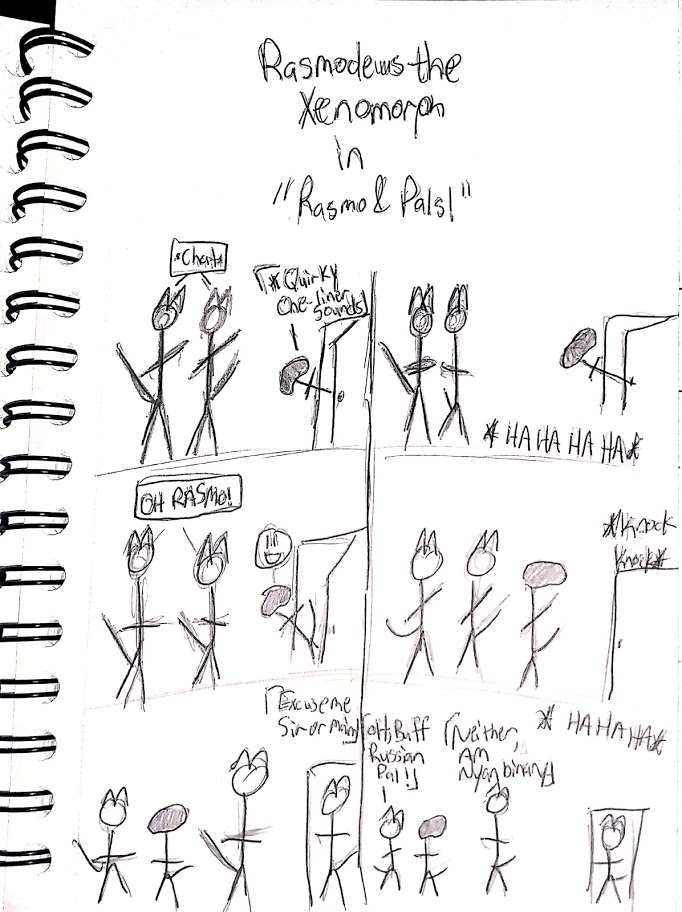 Rasmodeus the
Xenomorph
in
"Rasmo & Pals!"
*Chant*
*Quirky
One-liner
Sounds
*HA HA HA HA*
OH RASMO!
*Knock
Knock*
Excuse me
Sir or Ma'm
Oh, Buff
Russian
Pal!
Neither,
AM
Nyanbinary
* HA HA HA*